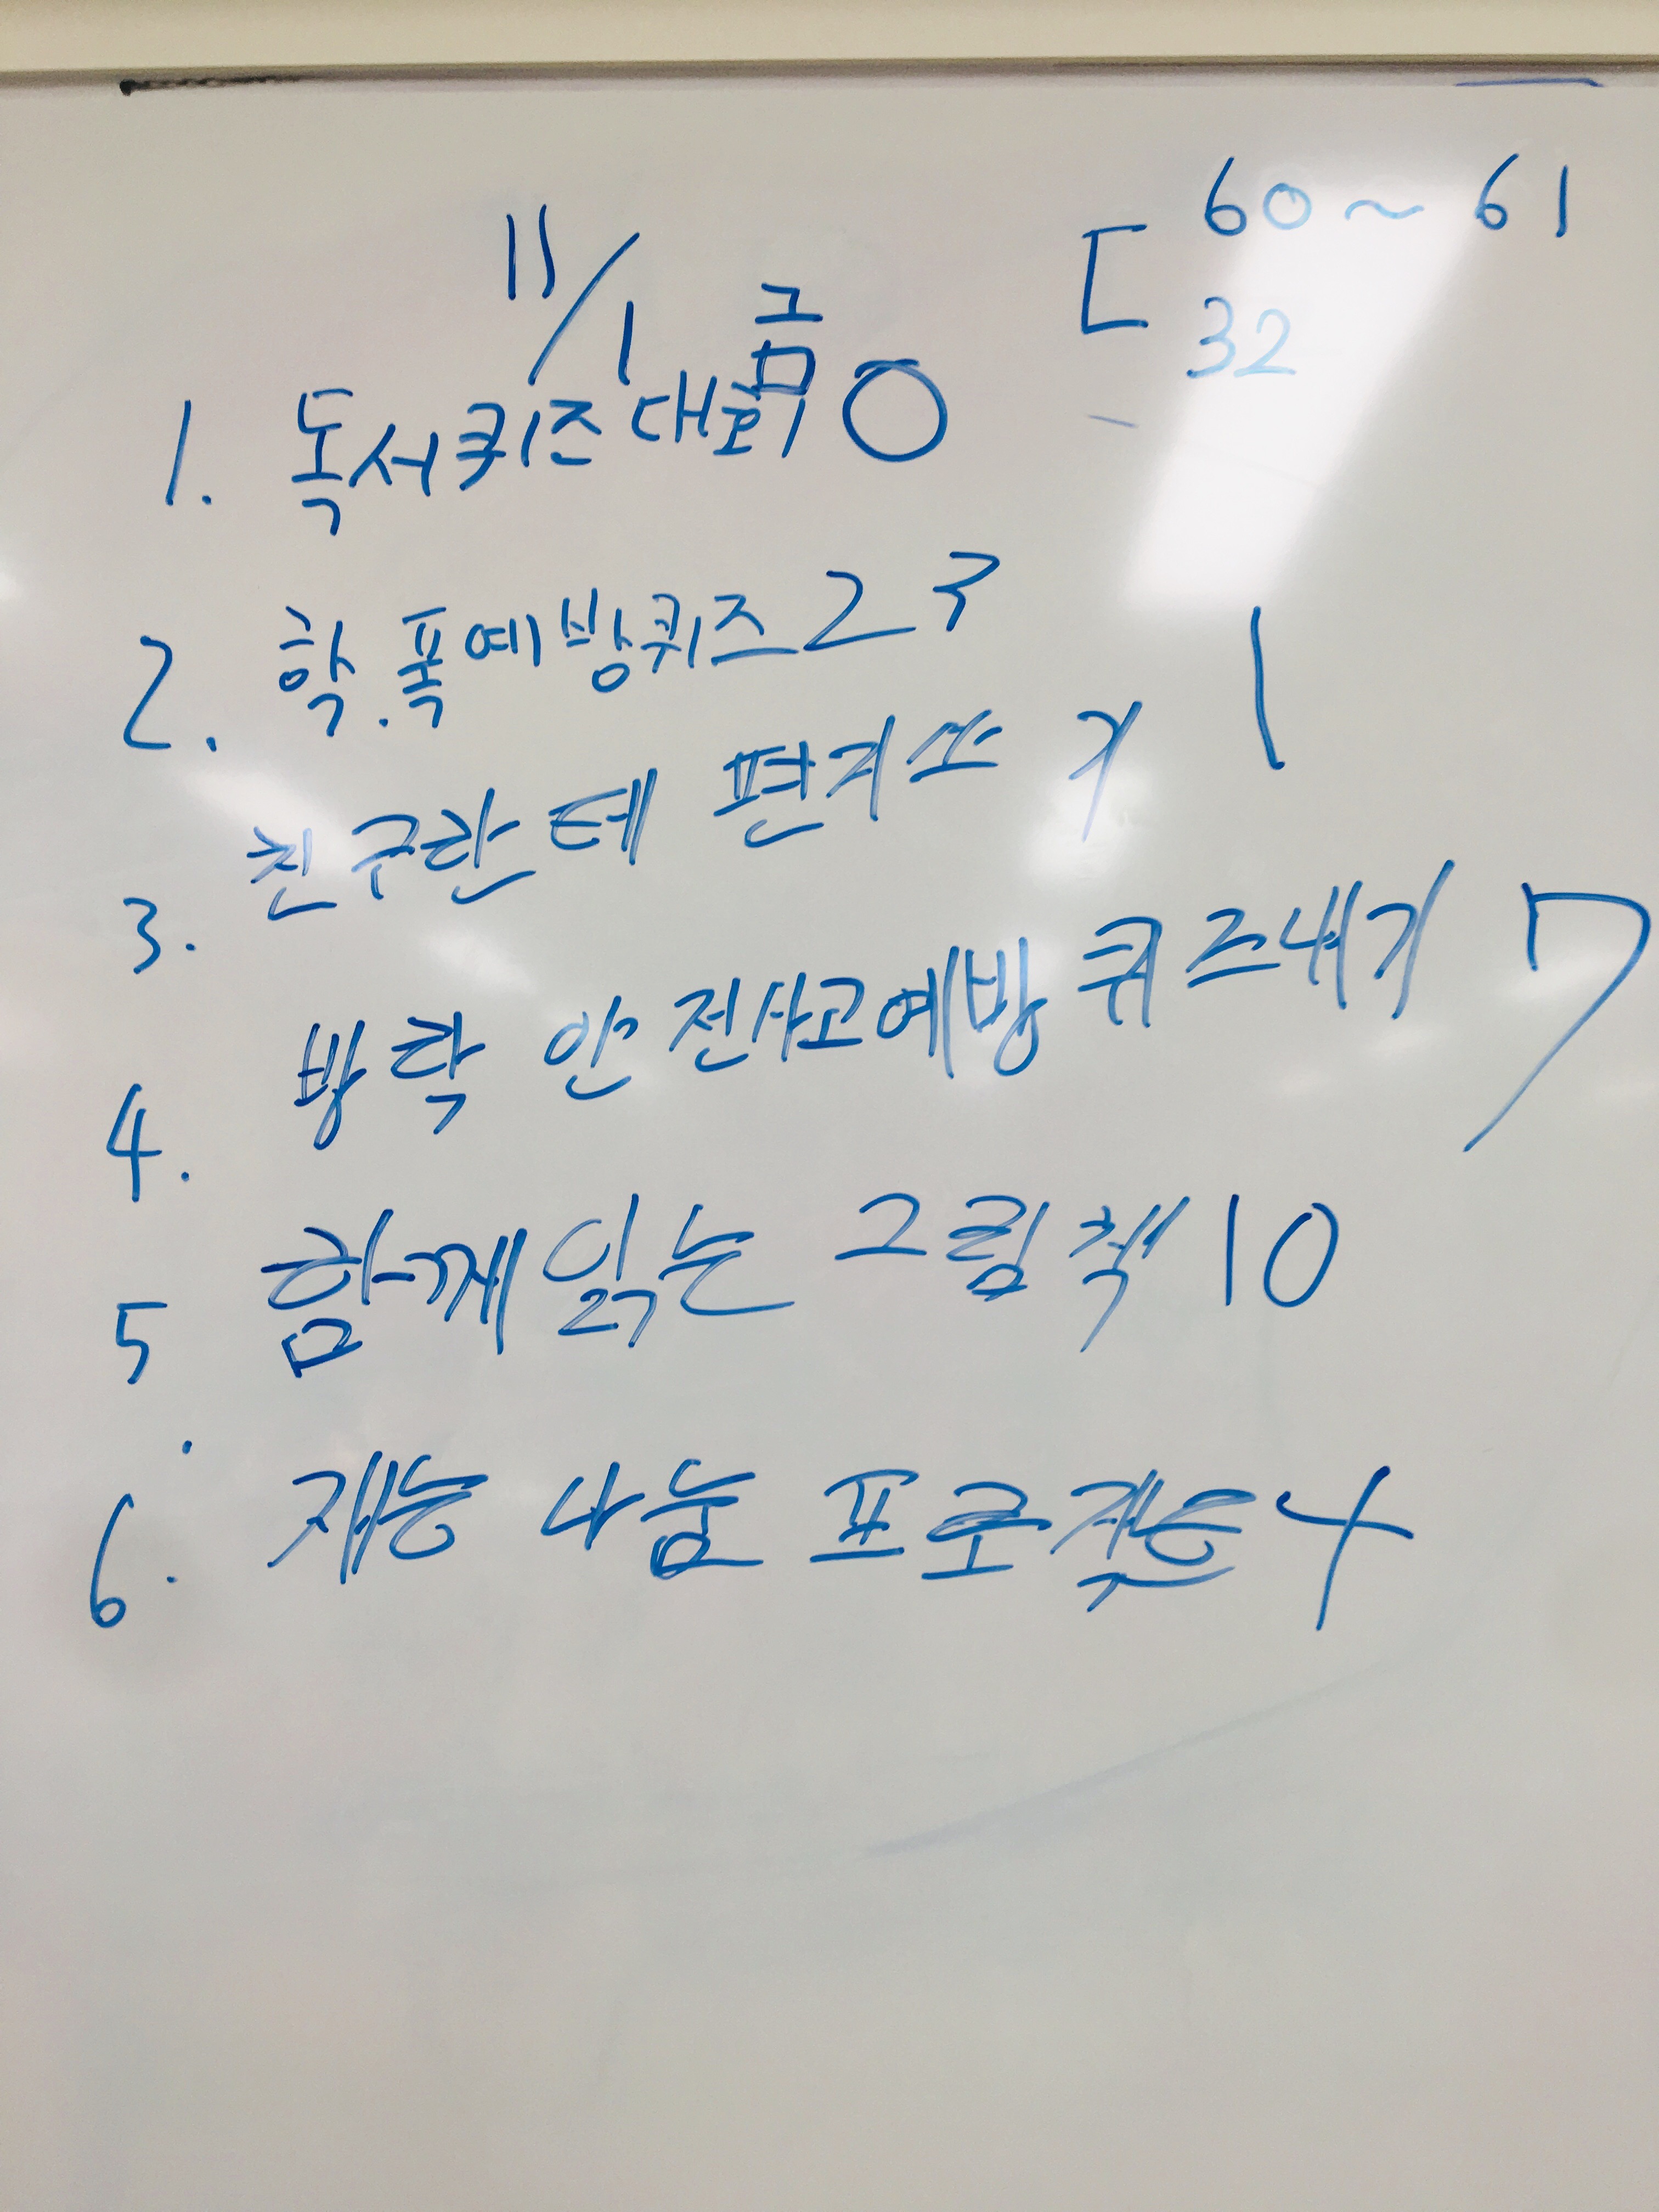 11/1 금
[ 60 ~ 61
32
1. 독서퀴즈대회 0
2. 학.폭예방퀴즈 23
3. 친구란테 편지쓰기 1
4. 방탁 안전사고예방 퀴즈내기 7
5. 함께읽는 그림책 10
6. 재능 나눔 프로젝트 4